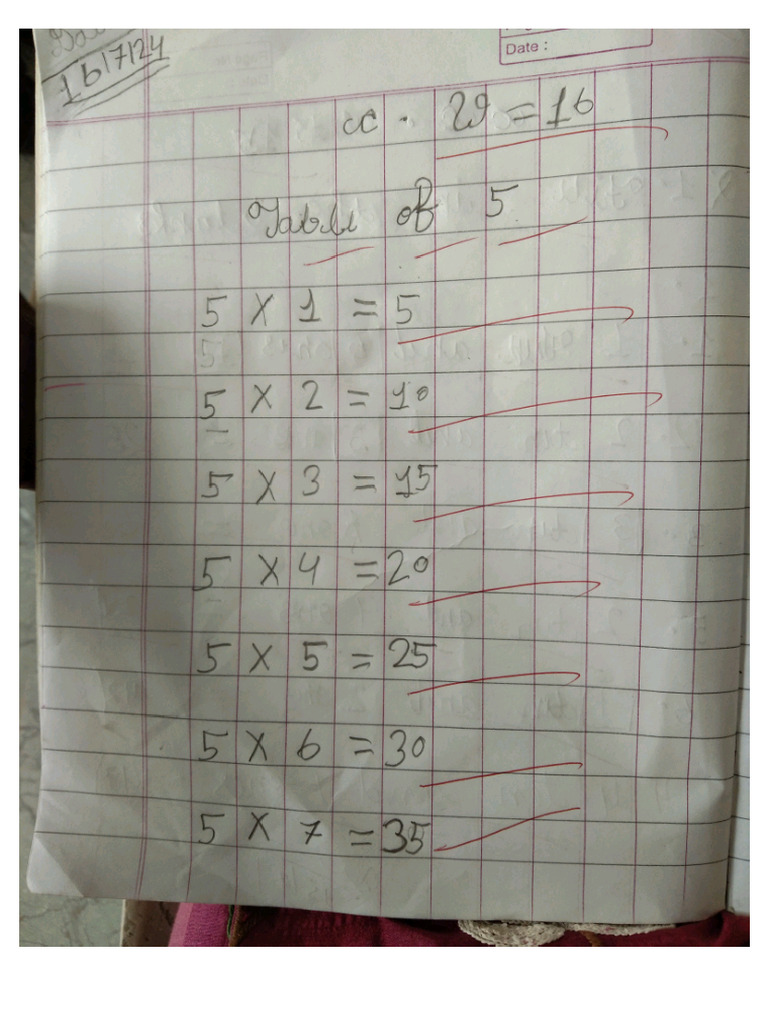 Date :
16/7/24
cc . W = 16
Table of 5
5 X 1 = 5
5 X 2 = 10
5 X 3 = 15
5 X 4 = 20
5 X 5 = 25
5 X 6 = 30
5 X 7 = 35